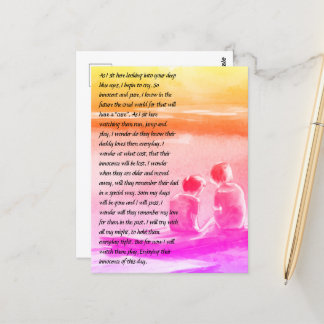 As I sit here looking into your deep
blue eyes, I begin to cry. So
innocent and pure, I know in the
future the cruel world for that will
have a "cure". As I sit here
watching them run, jump and
play, I wonder do they know their
daddy loves them everyday, I
wonder at what cost, that their
innocence will be lost. I wonder
when they are older and moved
away, will they remember their dad
in a special way. Soon my days
will be gone and I will pass, I
wonder will they remember my love
for them in the past, I will try with
all my might, to hold them
everyday tight. But for now I will
watch them play. Enjoying their
innocence of this day.